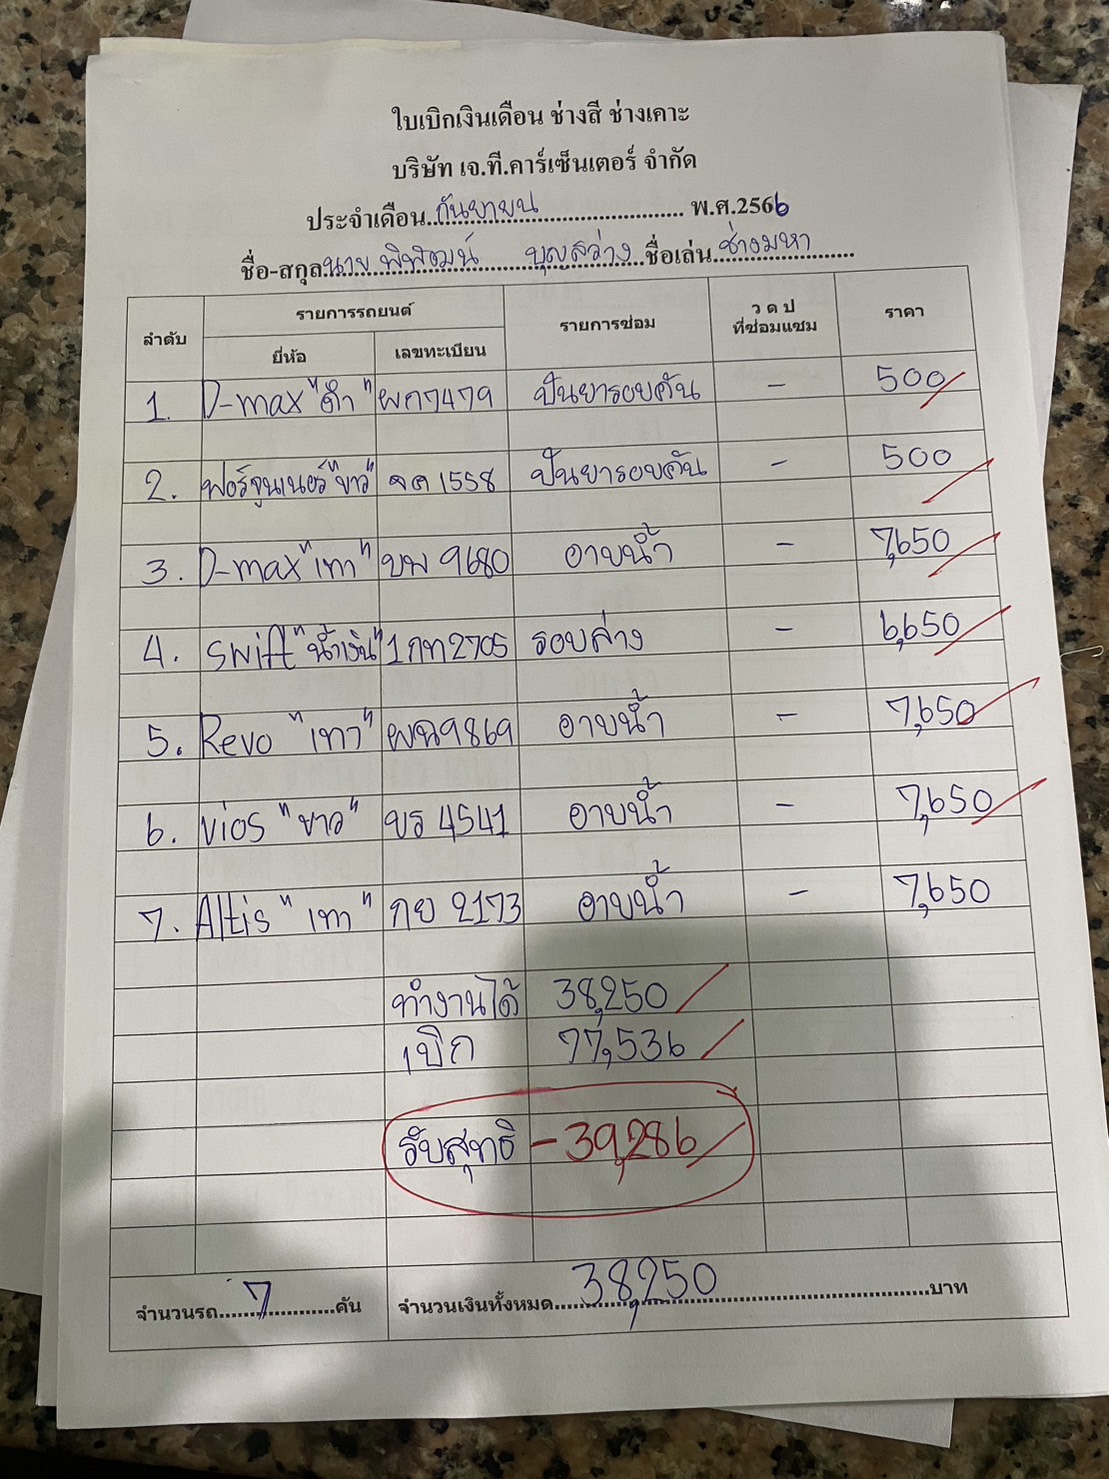 ใบเบิกเงินเดือน ช่างสี ช่างเคาะ
บริษัท เจ.ที.คาร์เซ็นเตอร์ จำกัด
ประจำเดือน..กันยายน.......................... พ.ศ.2566
ชื่อ-สกุล.นาย พิพัฒน์ บุญสว่าง..ชื่อเล่น..ช่างมหา.......
ลำดับ รายการรถยนต์ รายการซ่อม ว ด ป ที่ซ่อมแซม ราคา
ยี่ห้อ เลขทะเบียน
1. D-max "ดำ" ผก7479 ปั่นยารอบคัน - 500
2. ฟอร์จูนเนอร์"ขาว" จค 1558 ปั่นยารอบคัน - 500
3. D-max "เทา" บพ 9680 อาบน้ำ - 7,650
4. Swift "น้ำเงิน" 1กท2705 รอบล่าง - 6,650
5. Revo "เทา" ผฉ9869 อาบน้ำ - 7,650
6. Vios "ขาว" ขร 4541 อาบน้ำ - 7,650
7. Altis "เทา" กย 2173 อาบน้ำ - 7,650
ทำงานได้ 38,250
เบิก 77,536
รับสุทธิ -39,286
จำนวนรถ......7............คัน จำนวนเงินทั้งหมด....38,250..............................บาท